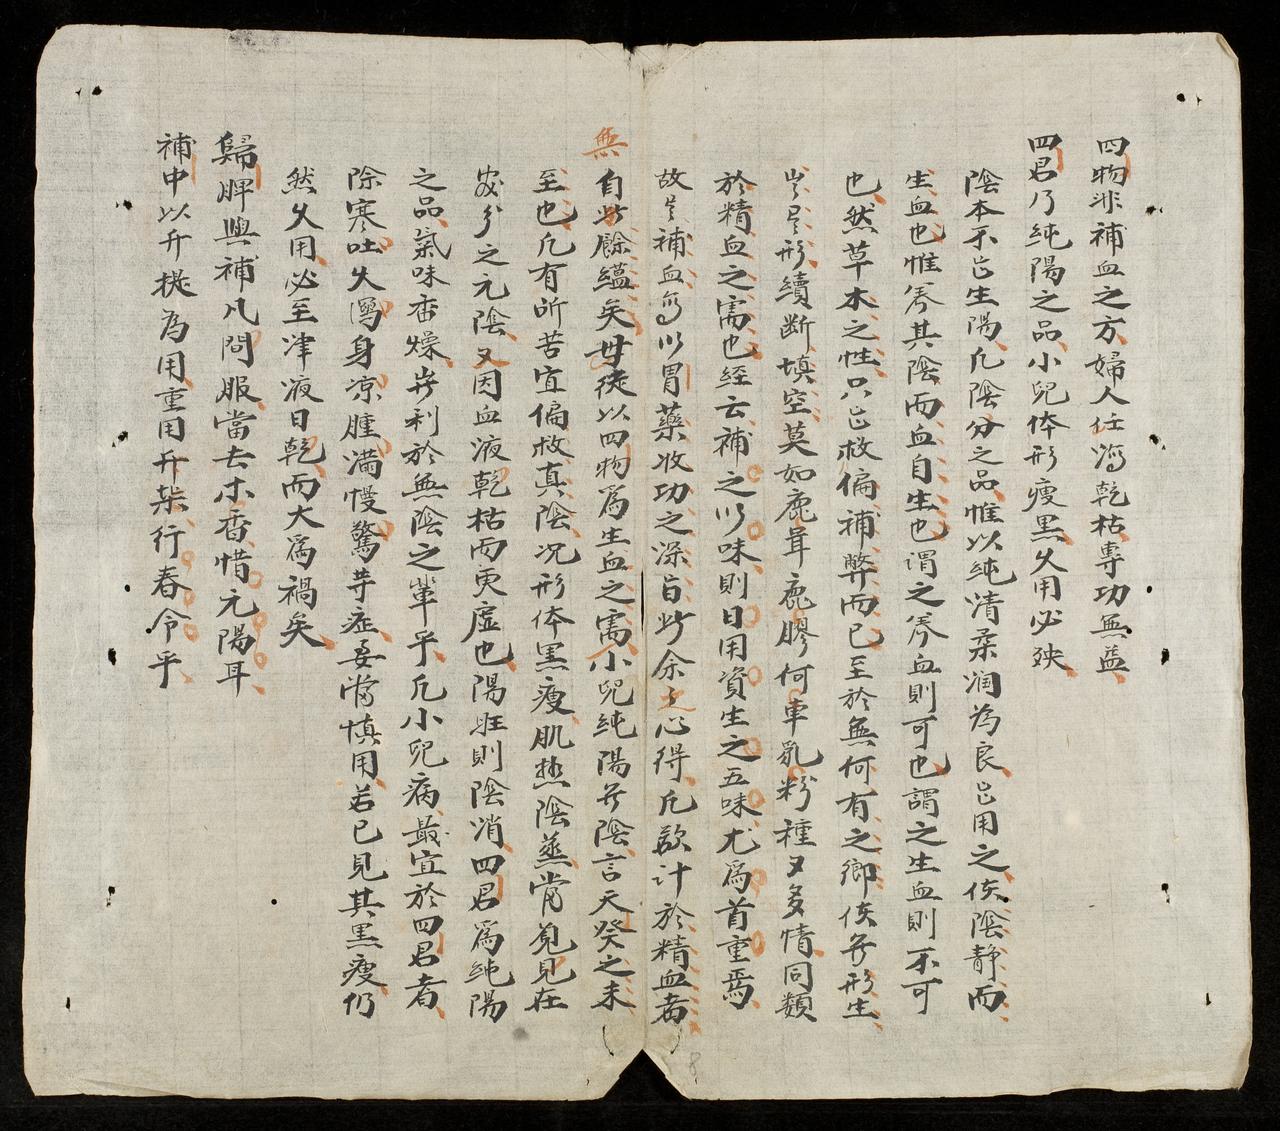 四物非補血之方婦人任瀉乾枯專功無益
四君乃純陽之品小兒体形瘦黑久用必殃
陰本不㠯生陽凡陰分之品惟以純清柔润為良㠯用之俟陰静而
生血也惟养其陰而血自生也謂之养血則可也謂之生血則不可
也然草木之性只㠯救偏補弊而已至於無何有之鄉俟形生
形續断填空莫如鹿茸鹿膠何車乳粉種又多情同類
於精血之需也經云補之以味則日用資生之五味尤為首重焉
故補血以胃藥收功之深旨此余之心得凡欲計於精血者
無
自此餘蘊矣毋徒以四物為生血之需小兒純陽陰言天癸之未
至也凡有所苦宜偏救真陰况形体黑瘦肌热陰蒸常覓見在
之元陰又因血液乾枯而更虛也陽旺則陰消四君為純陽
之品氣味香燥利於無陰之輩乎凡小兒病最宜於四君者
除寒吐久瀉身凉腫滿慢驚等症妾當慎用若已見其黑瘦仍
然久用必至津液日乾而大為禍矣
歸脾興補凡間服當去木香惜元陽耳
補中以升提為用重用升柴行春令乎